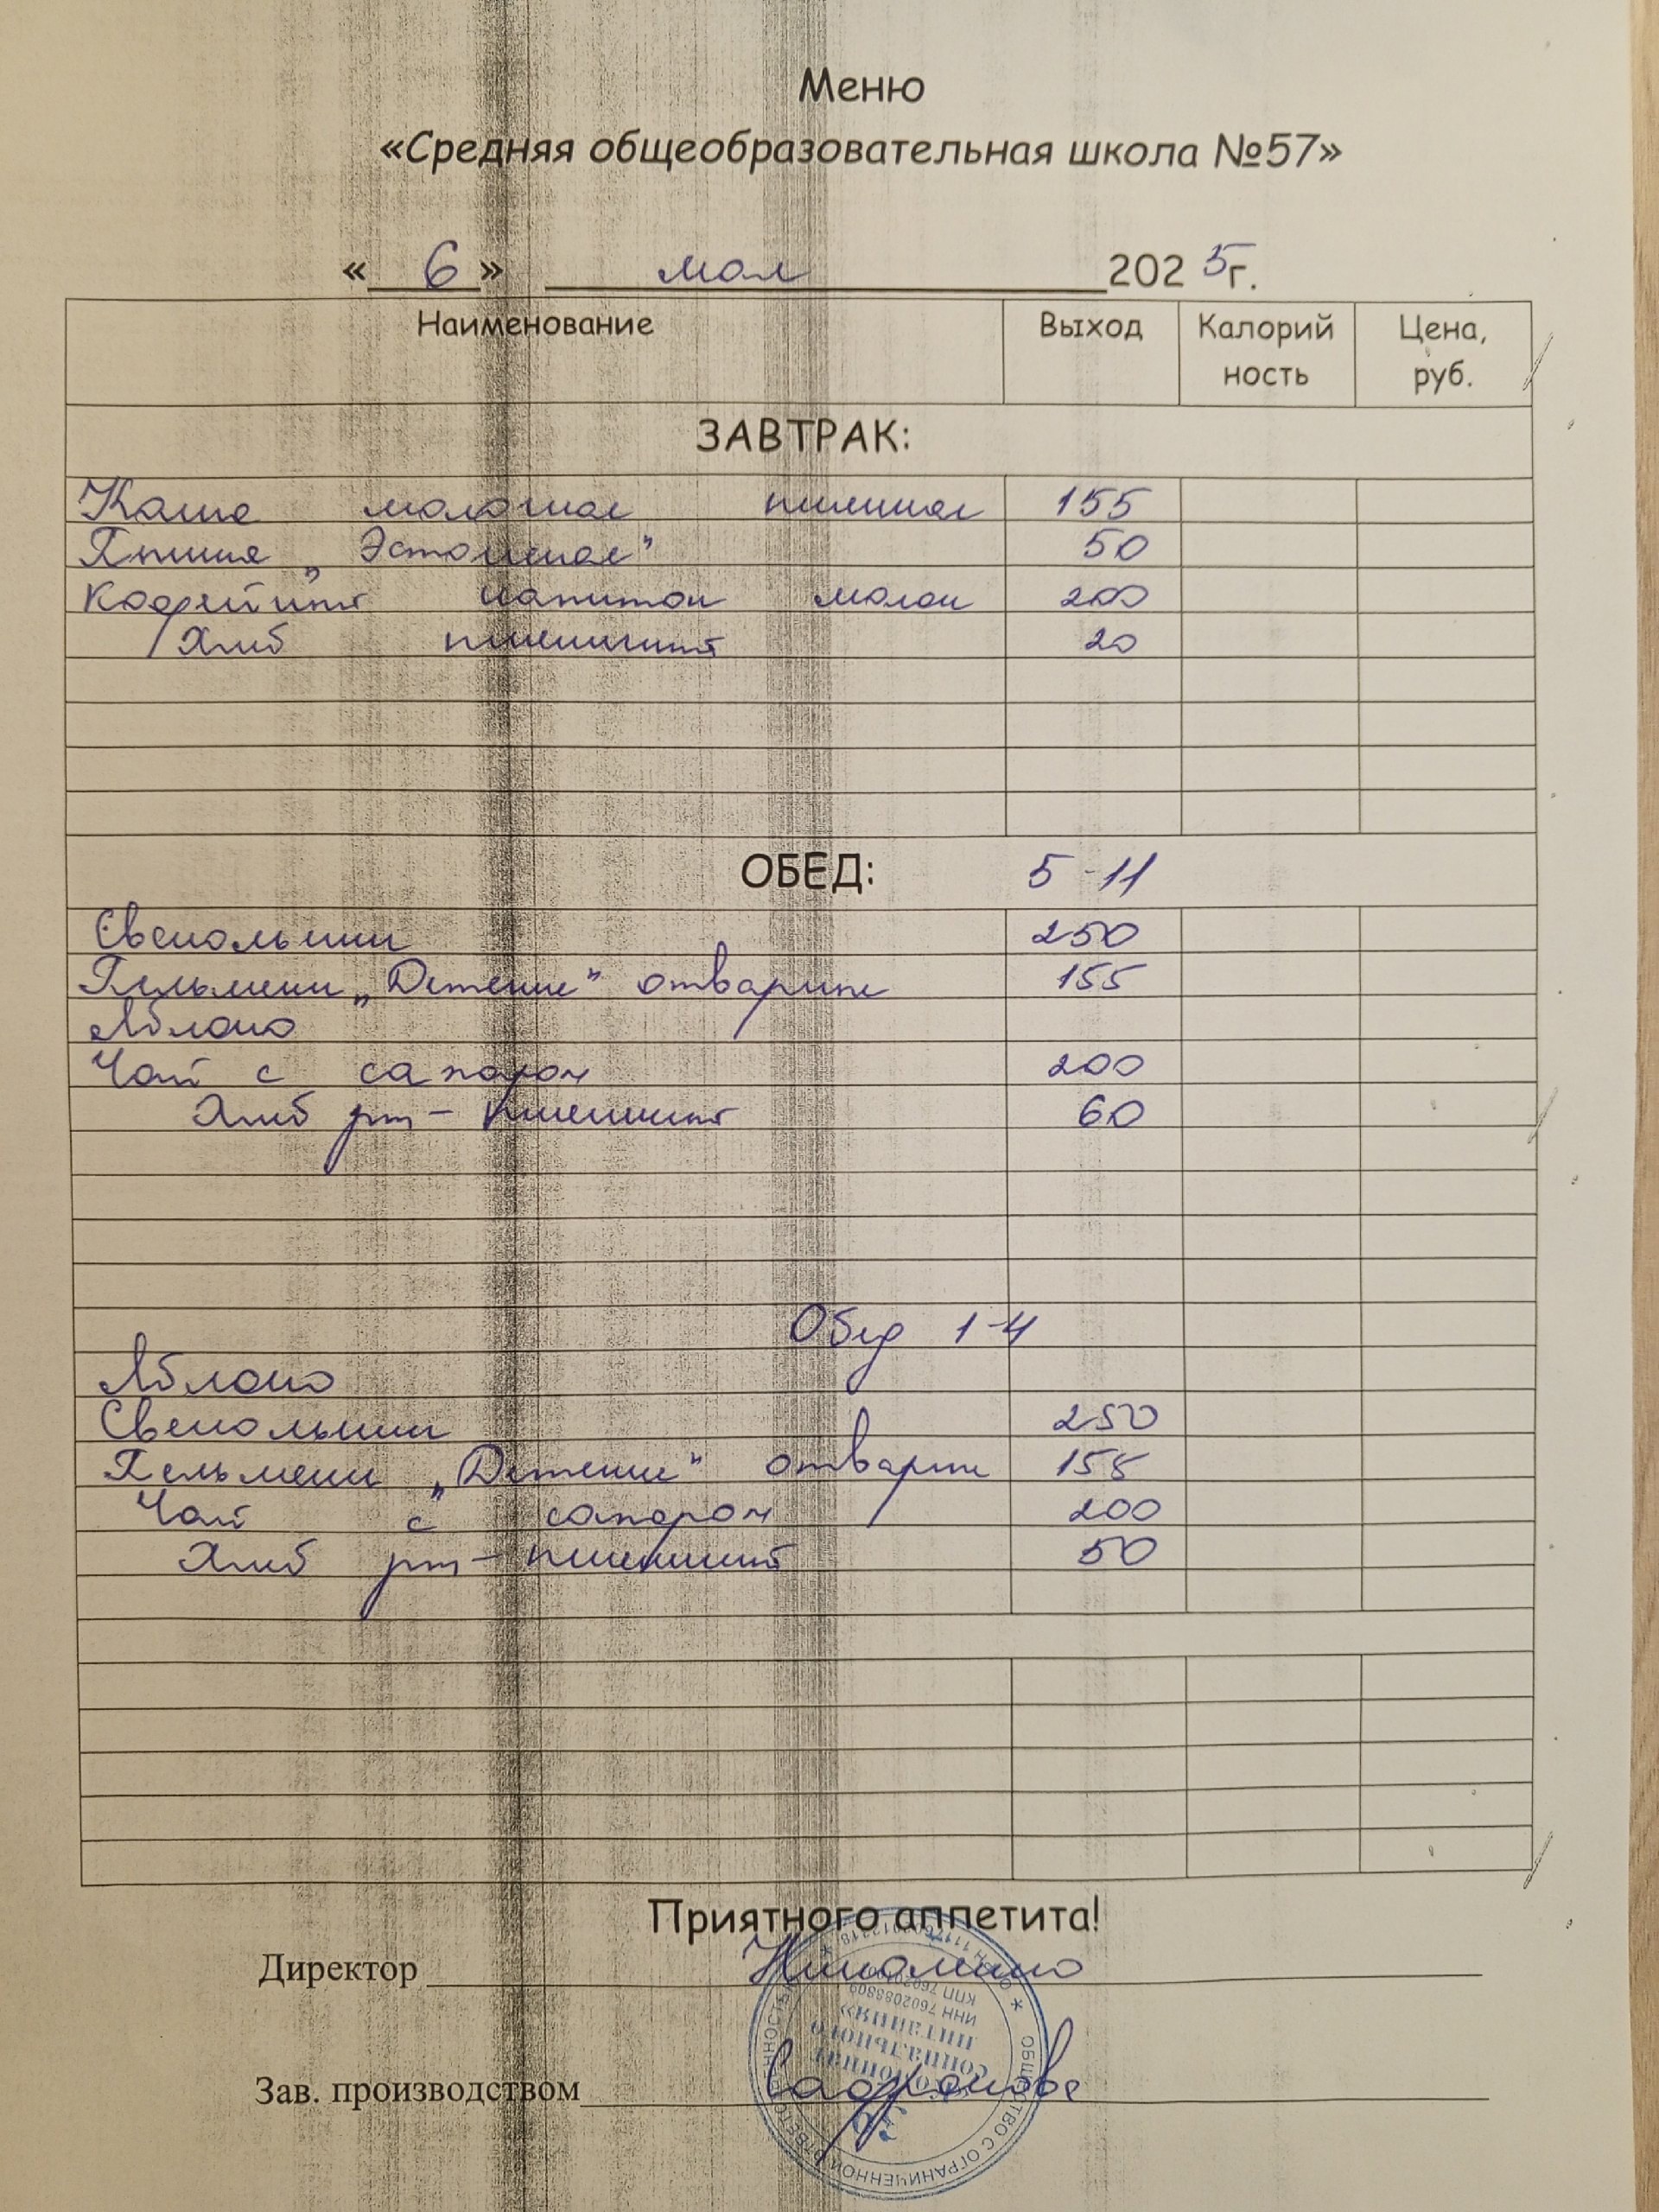 Меню
«Средняя общеобразовательная школа №57»
« 6 » мая 2025г.
Наименование Выход Калорий Цена,
ность руб.
ЗАВТРАК:
Каша молочная пшенная 155
"Эстонская" 50
Кофейный напиток молоч 200
Хлеб пшеничный 20
ОБЕД: 5-11
Свекольник 250
Пельмени "Детские" отварные 155
Яблоко
Чай с сахаром 200
Хлеб рж - пшеничный 60
Обед 1-4
Яблоко
Свекольник 250
Пельмени "Детские" отварн 155
Чай с сахаром 200
Хлеб рж - пшеничный 50
Приятного аппетита!
Директор
Зав. производством
ОБЩЕСТВО С ОГРАНИЧЕННОЙ ОТВЕТСТВЕННОСТЬЮ
социального
питания»
ИНН 7602088809